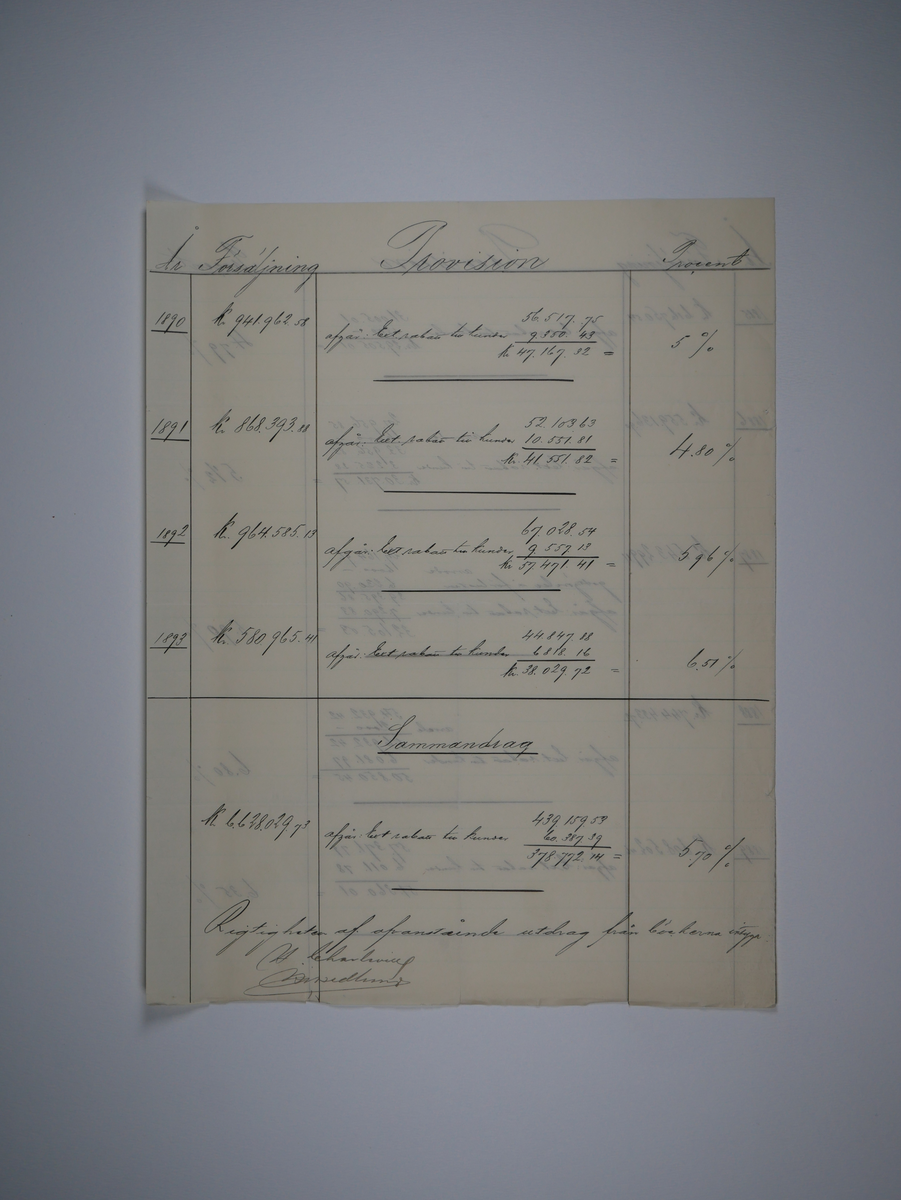 År Försäljning Provision Procent
1890 Kr. 941.962.58 56.517.75
afgår: Ext rabatt till kunder 9.350.43
Kr. 47.167.32 = 5 %
1891 Kr. 868.393.88 52.103.63
afgår: Ext rabatt till kunder 10.551.81
Kr. 41.551.82 = 4.80 %
1892 Kr. 964.585.13 67.028.54
afgår: Ext rabatt till kunder 9.557.13
Kr. 57.471.41 = 5.96 %
1893 Kr. 580.965.41 44.847.88
afgår: Ext rabatt till kunder 6.818.16
Kr. 38.029.72 = 6.51 %
Sammandrag
Kr. 6.628.029.73 439.159.53
afgår: Ext rabatt till kunder 60.387.39
378.772.14 = 5.70 %
Rigtigheten af ofvanstående utdrag från böckerna intyga